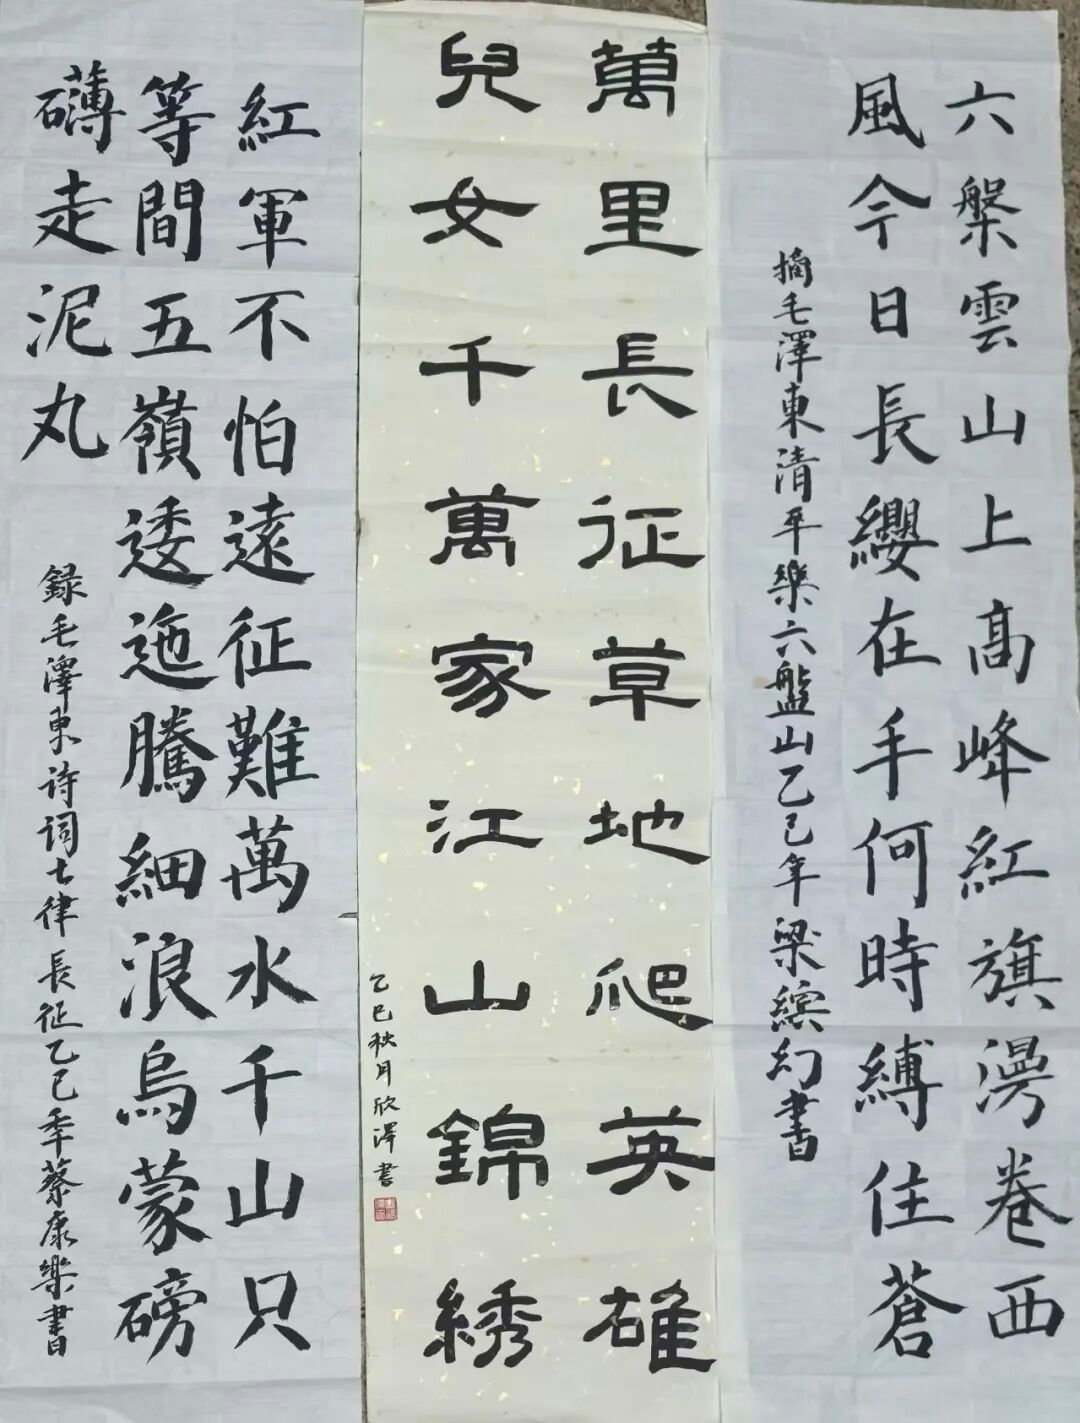 六槃雲山上高峰紅旗漫卷西
風今日長纓在手何時縛住蒼
摘毛澤東清平樂六盤山乙巳年梁繽幻書
萬里長征草地爬英雄
兒女千萬家江山錦綉
乙巳秋月欣澤書
紅軍不怕遠征難萬水千山只
等間五嶺逶迤騰細浪烏蒙磅
礴走泥丸
録毛澤東诗词七律長征乙巳年蔡康樂書